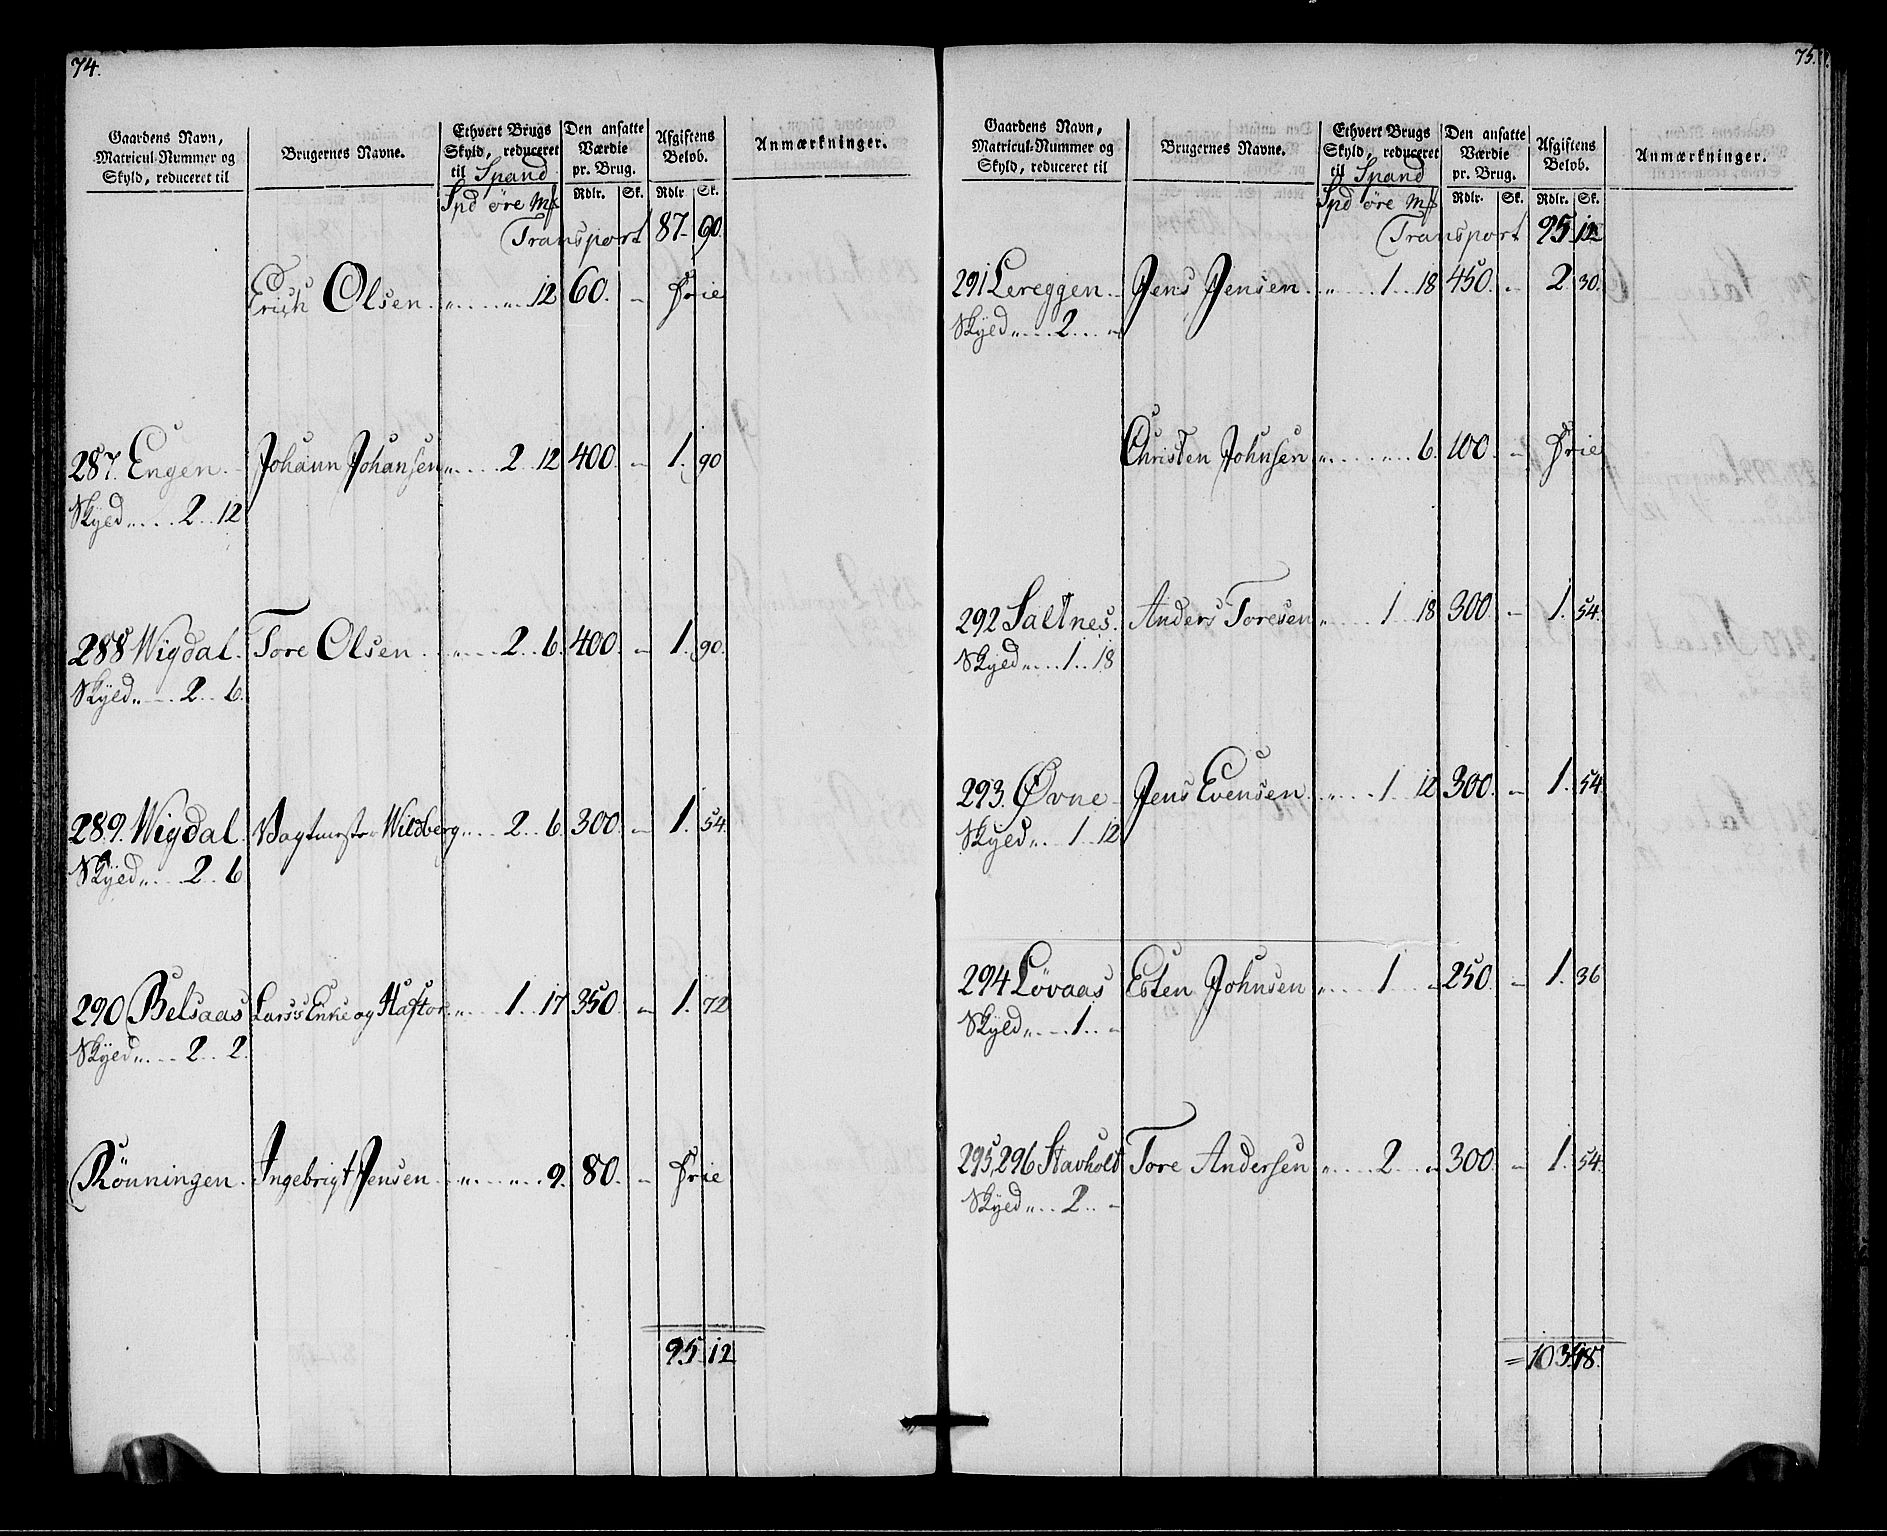 74.
Gaardens Navn, Matricul-Nummer og Skyld, reduceret til | Brugernes Navne. | Ethvert Brugs Skyld, reduceret til Spand | Den ansatte Værdie pr. Brug. | Afgiftens Belob. | Anmærkninger.
Spd øre Mk | Rdlr. Sk. | Rdlr Sk.
Transport 87. 90.
Erich Olsen „ „ 12 60. – Frie
287. Engen. Johann Johansen „ 2 12 400. – 1. 90
Skyld „ 2 12
288 Wigdal. Tore Olsen „ 2 6. 400. – 1. 90.
Skyld „ 2 6.
289. Wigdal. Vagtmester Wildberg „ 2 6. 300. – 1. 54.
Skyld „ 2 6
290 Belsaas Larss Enke og Haftor „ 1 17 350. – 1. 72
Skyld „ 2 2.
Rönningen. Ingebrigt Jensen „ „ 9. 80. – Frie
95. 12
75.
Gaardens Navn, Matricul-Nummer og Skyld, reduceret til | Brugernes Navne. | Ethvert Brugs Skyld, reduceret til Spand | Den ansatte Værdie pr. Brug. | Afgiftens Belob. | Anmærkninger.
Spd øre Mk | Rdlr. Sk. | Rdlr. Sk.
Transport 95. 12
291 Lereggen Jens Jensen „ 1 18 450. – 2 30.
Skyld „ 2 „
Christen Johnsen „ „ 6. 100. – Frie
292 Saltnes. Anders Toresen „ 1 18 300. – 1. 54.
Skyld „ 1 18
293. Øvne Jens Evensen „ 1 12 300. – 1. 54
Skyld „ 1 12
294 Lövaas Esten Johnsen „ 1 „ 250. – 1. 36
Skyld „ 1 „
295, 296 Stavholt Tore Andersen „ 2 „ 300. – 1. 54.
Skyld „ 2 –
= 103. 48.